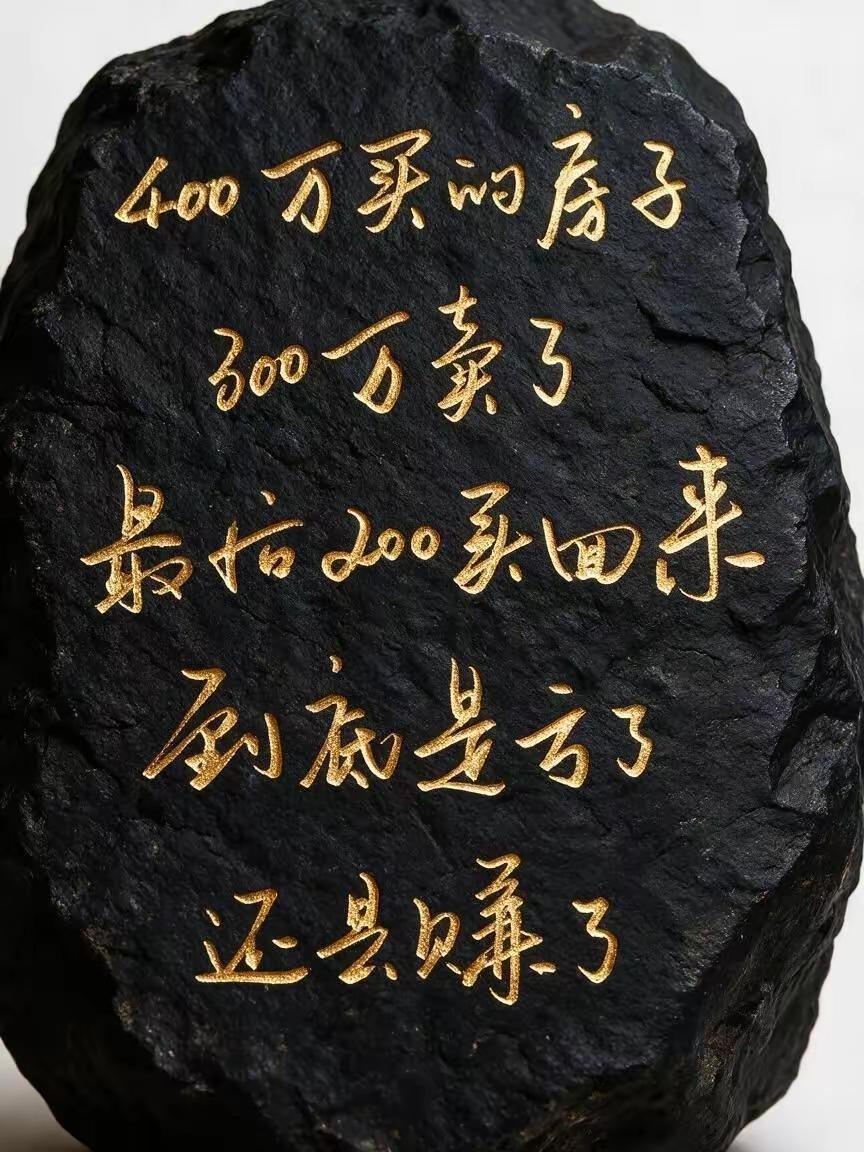 400万买的房子
300万卖了
最后200买回来
到底是亏了
还是赚了